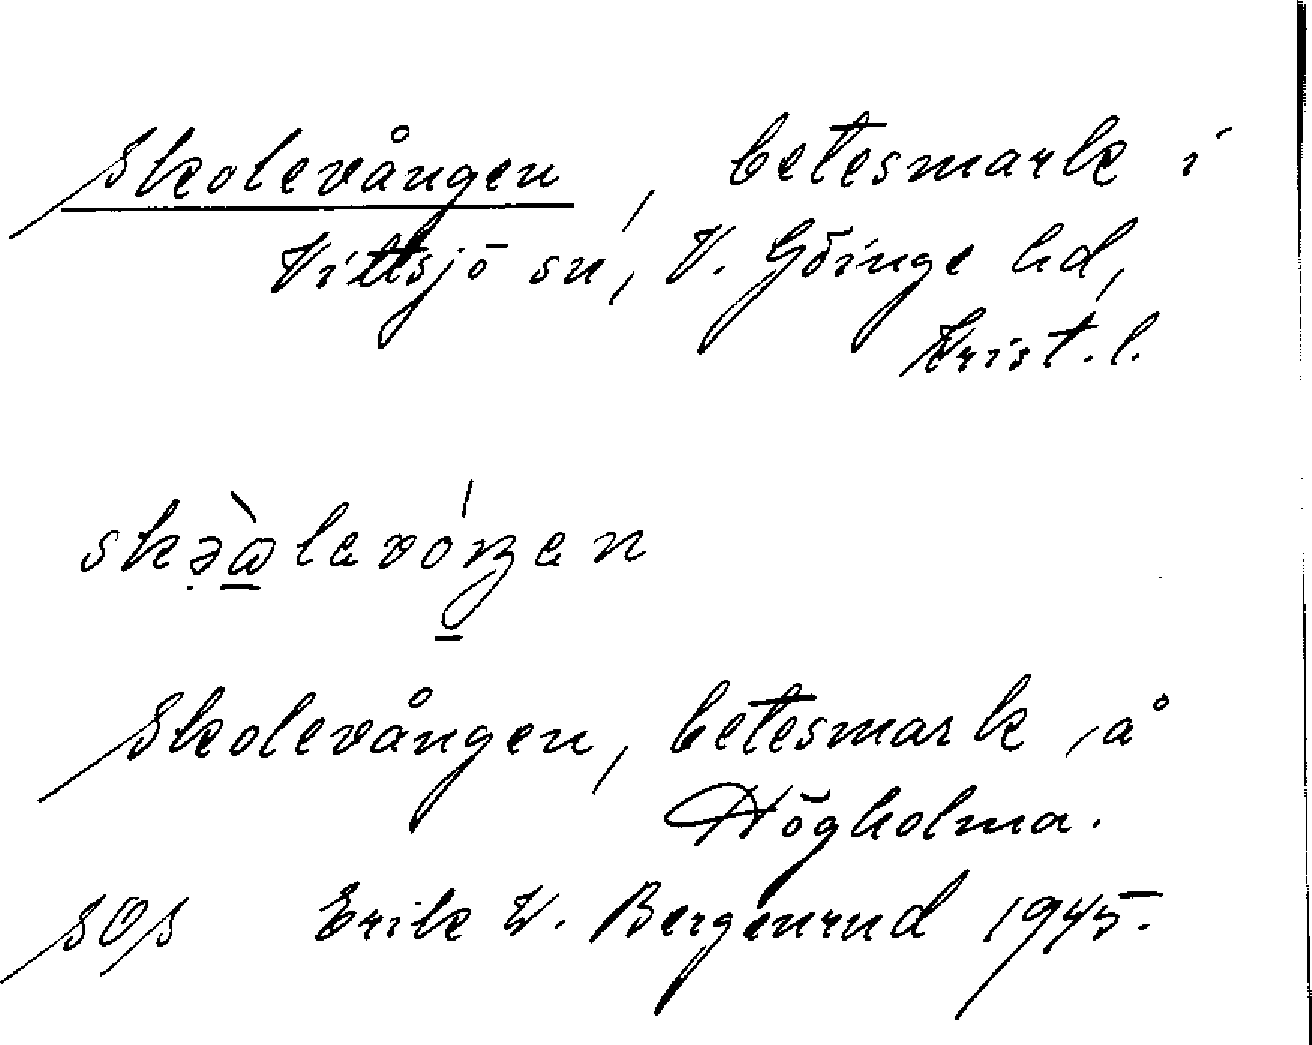 Skolevången, betesmark i
Vittsjö sn, V. Göinge hd,
Krist. l.
Skolevången, betesmark å
Högholma.
SOS Erik W. Bergenrud 1945.